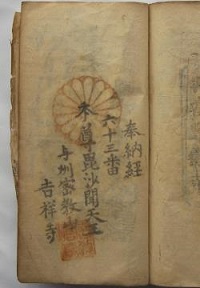 奉納経
六十三番
本尊毘沙聞天王
与州密教山
吉祥寺